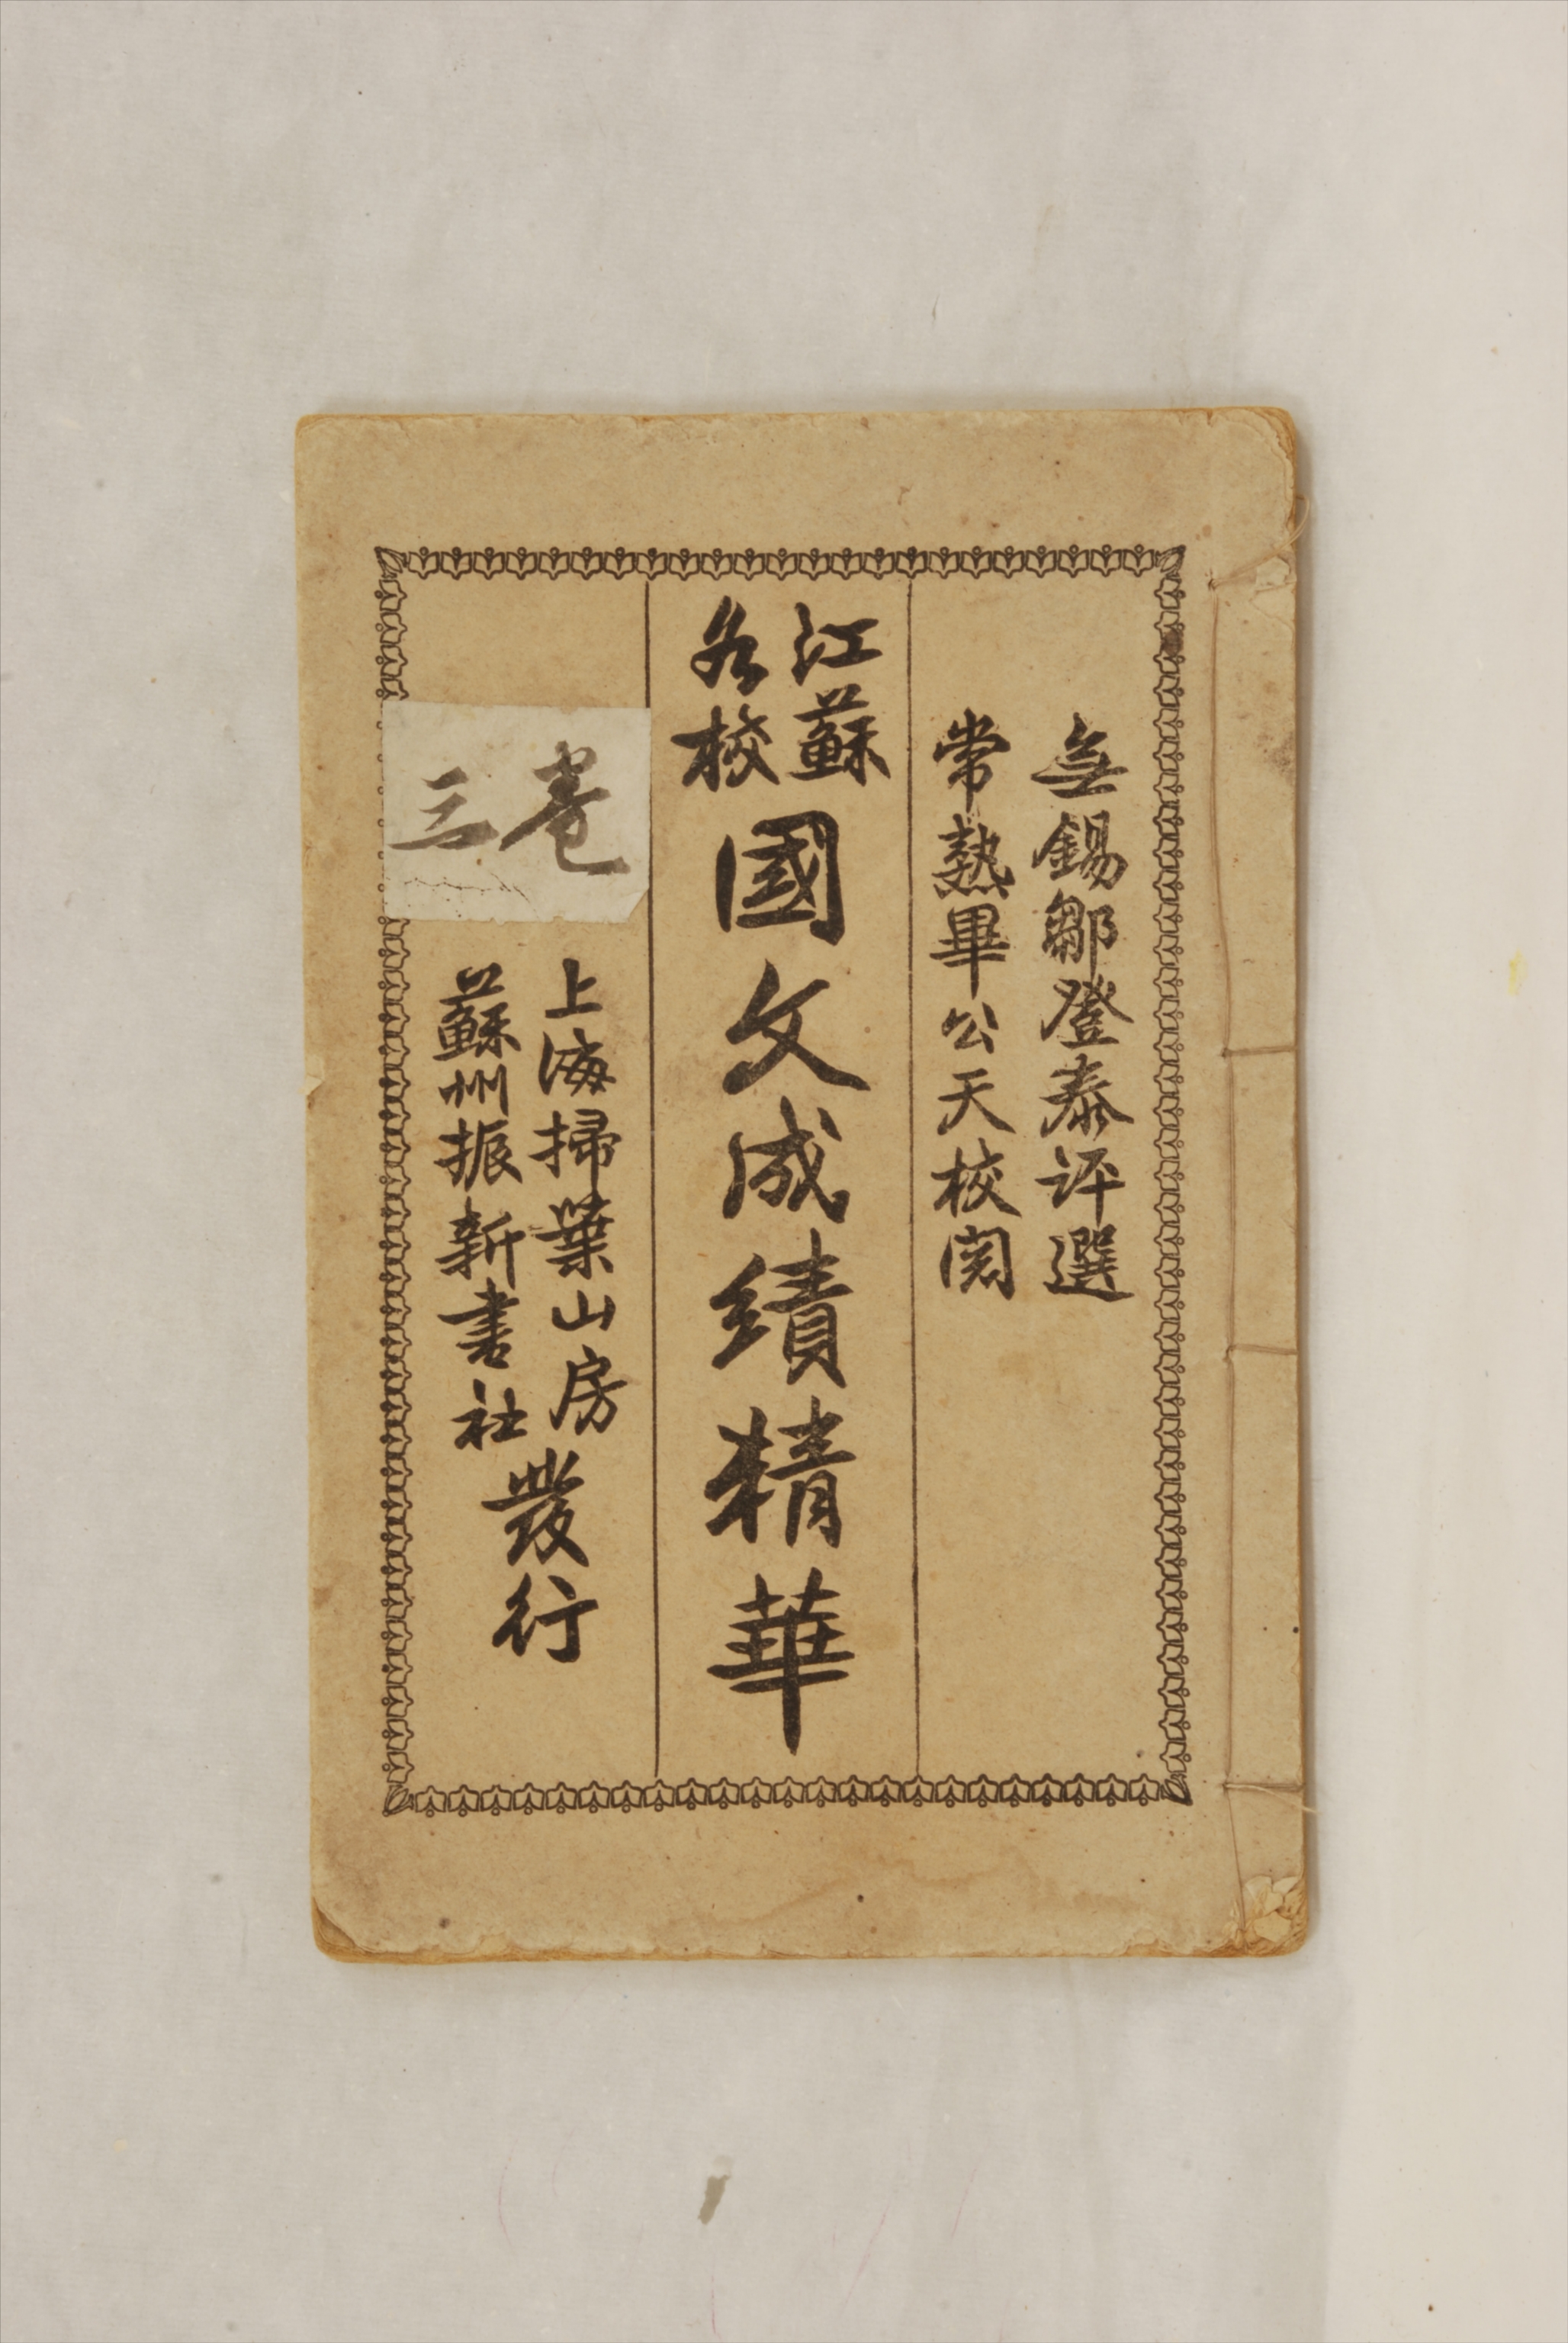 無錫鄒登泰評選
常熟畢公天校閱
江蘇
各校
國文成績精華
卷三
上海掃葉山房
蘇州振新書社
發行